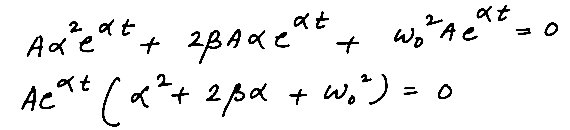 Aα²e^{αt} + 2βAαe^{αt} + ω₀²Ae^{αt} = 0
Ae^{αt}(α² + 2βα + ω₀²) = 0